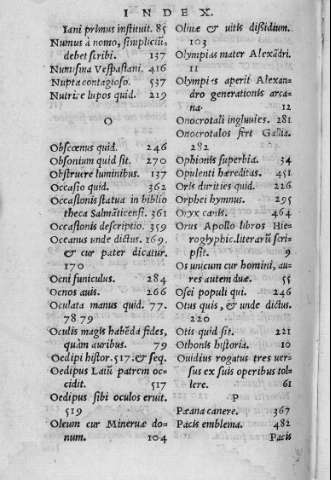 INDEX.
Iani primus instituit. 85
Numus à nomo, simpliciũ,
debet scribi. 137
Numisma Vespasiani. 416
Nupta contagioso. 537
Nutrix lupos quid. 219
O
Obscœnus quid. 246
Obsonium quid sit. 270
Obstruere luminibus. 137
Occasio quid. 362
Occasionis statua in biblio
theca Salmãticensi. 361
Occasionis descriptio. 359
Oceanus unde dictus. 169.
& cur pater dicatur.
170
Ocni funiculus. 284
Ocnos auis. 266
Oculata manus quid. 77.
78 79
Oculis magis habẽda fides,
quàm auribus. 79
Oedipi histor. 517. & seq.
Oedipus Laiũ patrem oc-
cidit. 517
Oedipus sibi oculos eruit.
519
Oleum cur Mineruæ do-
num. 104
Oliuæ & uitis dißidium.
103
Olympias mater Alexãdri.
11
Olympies aperit Alexan-
dro generationis arca-
na. 12
Onocrotali ingluuies. 281
Onocrotalos fert Gallia.
282
Ophionis superbia. 34
Opulenti hæreditas. 451
Oris durities quid. 226
Orphei hymnus. 295
Oryx canis. 464
Orus Apollo libros Hie-
roglyphic. literarũ scri-
psit. 9
Os unicum cur homini, au-
res autem duæ. 55
Osci populi qui. 246
Otus quis, & unde dictus.
220
Otis quid sit. 221
Othonis historia. 10
Ouidius rogatus tres uer-
sus ex suis operibus tol-
lere. 61
P
Pæana canere. 367
Pacis emblema. 482
Pacis